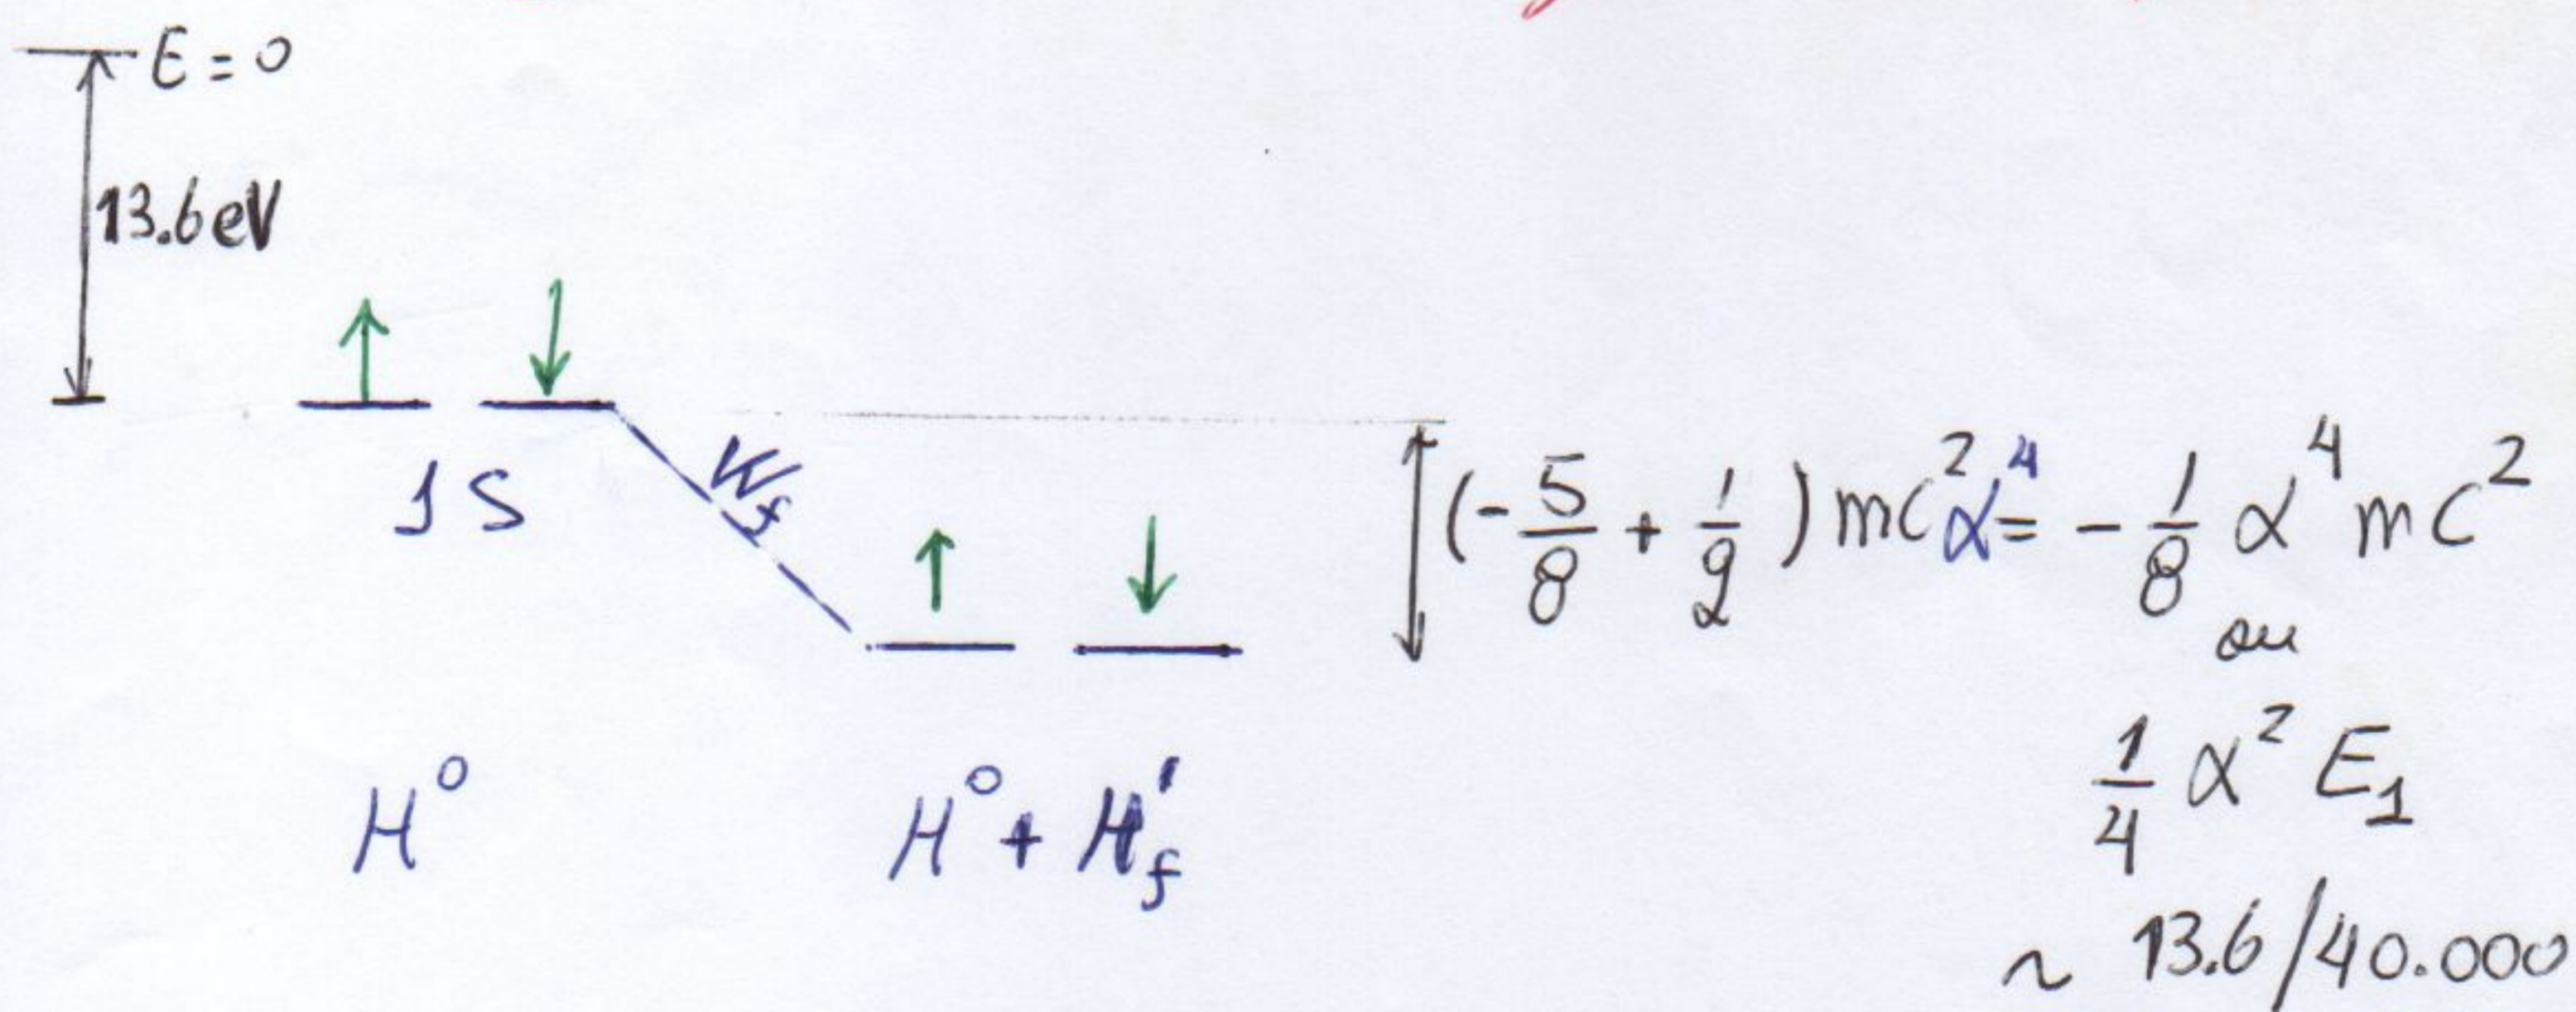 E = 0
13.6 eV
1S
W_f
(-5/8 + 1/2) mc²α⁴ = -1/8 α⁴ mc²
ou
1/4 α² E₁
~ 13.6/40.000
H⁰
H⁰ + H'_f